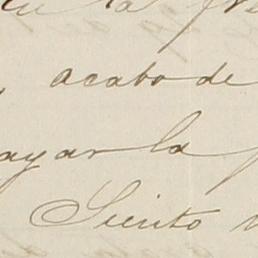 la
, acabo de
ayar la
Siento